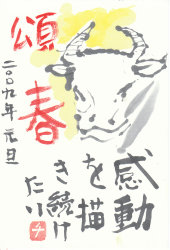 頌春
二〇〇九年 元旦
感動
を描
き続け
たい